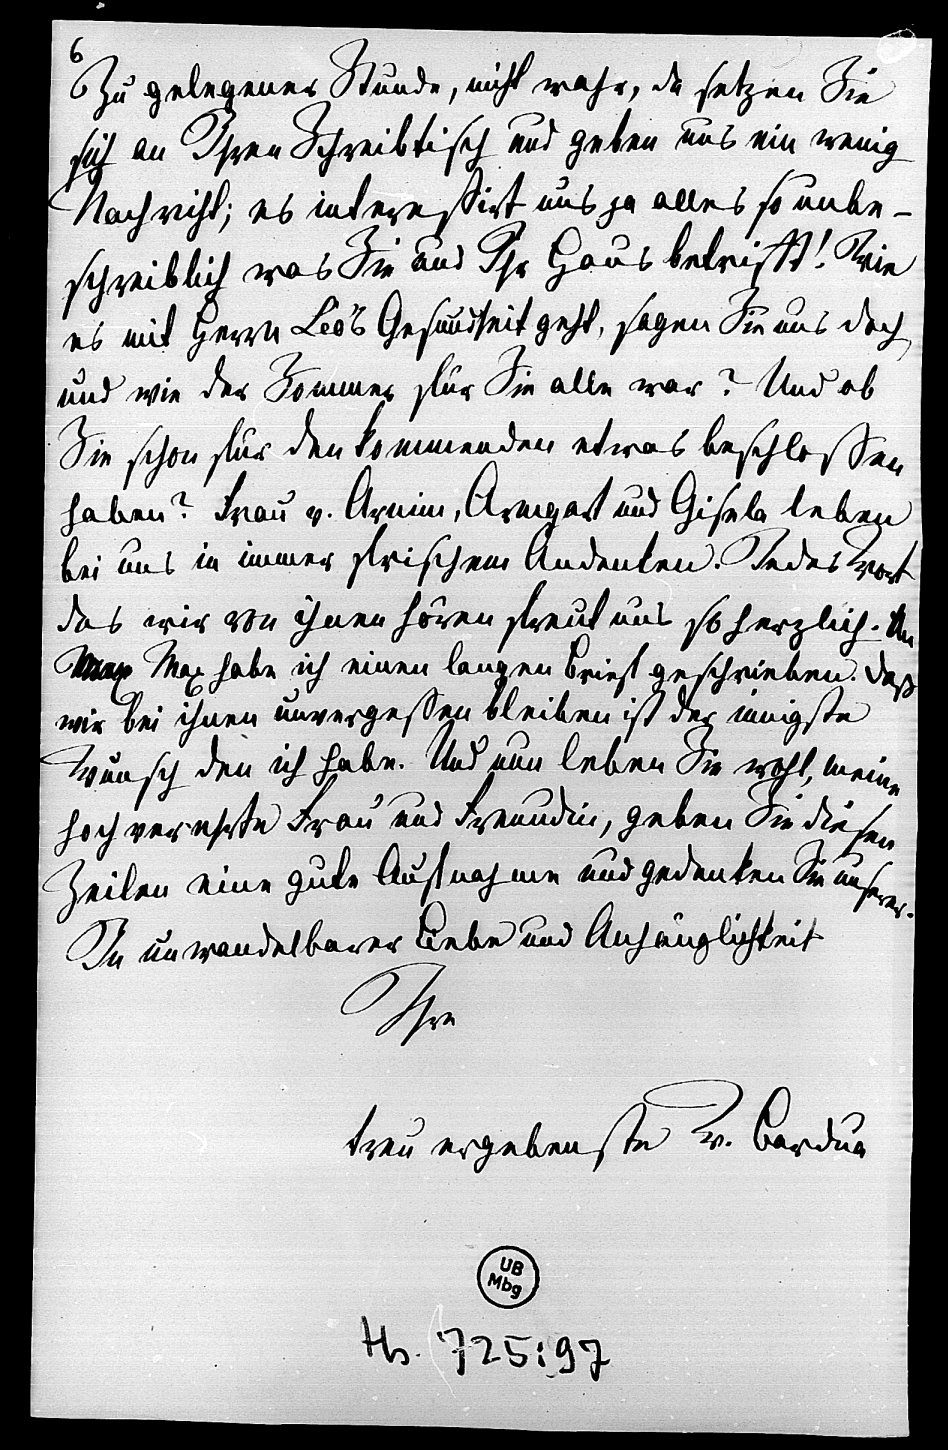 6
Zu gelegener Stunde, nicht wahr, da setzen Sie
sich an Ihren Schreibtisch und geben uns ein wenig
Nachricht; es interessirt uns ja alles so unbe-
schreiblich was Sie und Ihr Haus betrifft! Wie
es mit Herrn Leo's Gesundheit geht, sagen Sie uns doch,
und wie der Sommer für Sie alle war? Und ob
Sie schon für den kommenden etwas beschlossen
haben? Frau v. Arnim, Armgart und Gisela leben
bei uns in immer frischem Andenken. Jedes Wort
das wir von ihnen hören freut uns so herzlich. An
Max habe ich einen langen Brief geschrieben. Daß
wir bei ihnen unvergessen bleiben ist der innigste
Wunsch den ich habe. Und nun leben Sie wohl, meine
hochverehrte Frau und Freundin, geben Sie diesen
Zeilen eine gute Aufnahme und gedenken Sie unserer.
In unwandelbarer Liebe und Anhänglichkeit
Ihre
treu ergebenste W. Bardua
UB
Mbg
Hs. 725:97